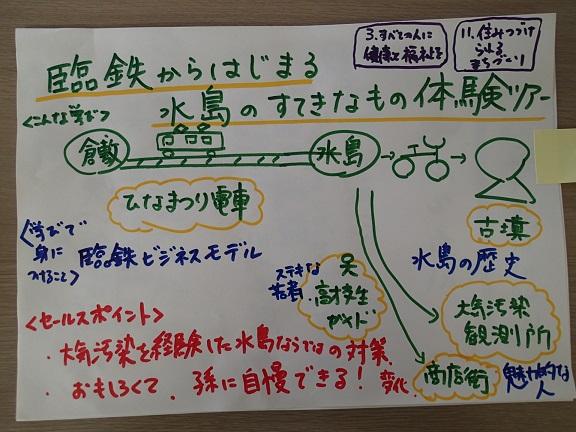 3.すべての人に
健康と福祉を
11.住みつづけ
られる
まちづくり
臨鉄からはじまる
水島のすてきなもの体験ツアー
<こんな学び>
倉敷
水島
ひなまつり電車
古墳
<学びで
身に
つけること>
臨鉄ビジネスモデル
水島の歴史
ステキな
若者
高校生
ガイド
大気汚染
観測所
<セールスポイント>
・大気汚染を経験した水島ならではの対策
・おもしろくて、孫に自慢できる!
変化
商店街
魅力的な
人